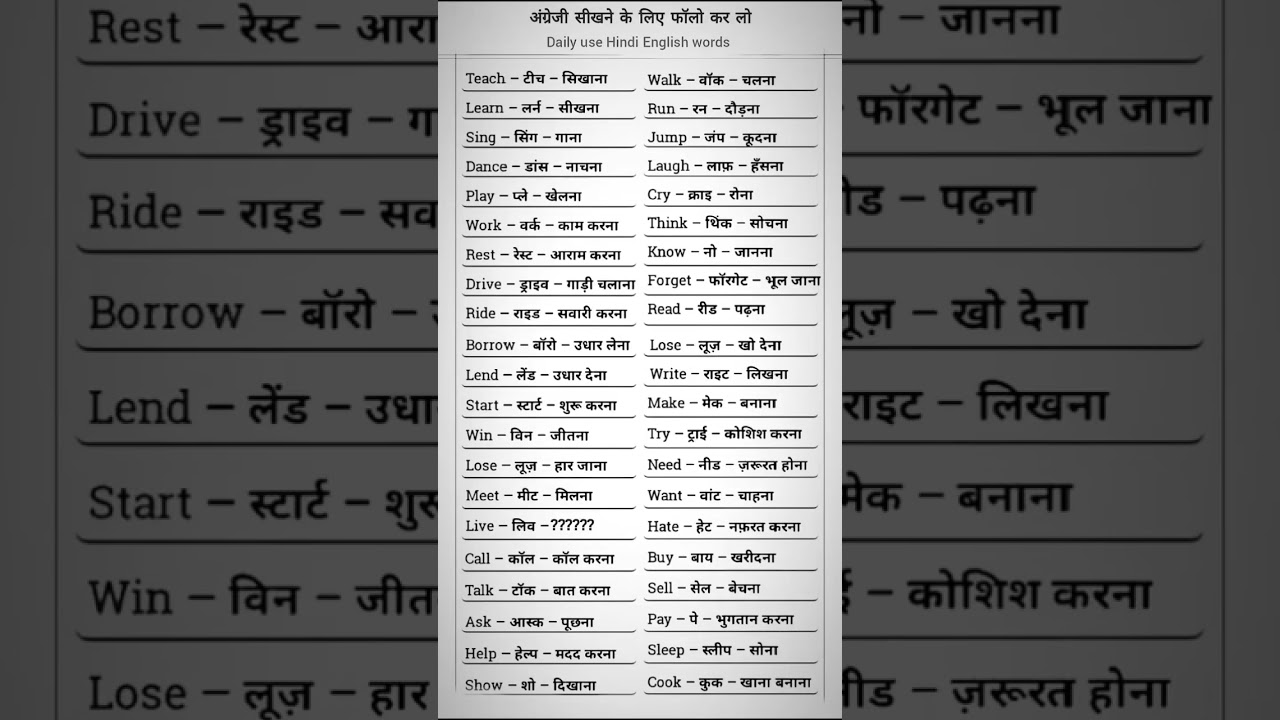 अंग्रेजी सीखने के लिए फॉलो कर लो
Daily use Hindi English words
Teach – टीच – सिखाना
Learn – लर्न – सीखना
Sing – सिंग – गाना
Dance – डांस – नाचना
Play – प्ले – खेलना
Work – वर्क – काम करना
Rest – रेस्ट – आराम करना
Drive – ड्राइव – गाड़ी चलाना
Ride – राइड – सवारी करना
Borrow – बॉरो – उधार लेना
Lend – लेंड – उधार देना
Start – स्टार्ट – शुरू करना
Win – विन – जीतना
Lose – लूज़ – हार जाना
Meet – मीट – मिलना
Live – लिव –??????
Call – कॉल – कॉल करना
Talk – टॉक – बात करना
Ask – आस्क – पूछना
Help – हेल्प – मदद करना
Show – शो – दिखाना
Walk – वॉक – चलना
Run – रन – दौड़ना
Jump – जंप – कूदना
Laugh – लाफ़ – हँसना
Cry – क्राइ – रोना
Think – थिंक – सोचना
Know – नो – जानना
Forget – फॉरगेट – भूल जाना
Read – रीड – पढ़ना
Lose – लूज़ – खो देना
Write – राइट – लिखना
Make – मेक – बनाना
Try – ट्राई – कोशिश करना
Need – नीड – ज़रूरत होना
Want – वांट – चाहना
Hate – हेट – नफ़रत करना
Buy – बाय – खरीदना
Sell – सेल – बेचना
Pay – पे – भुगतान करना
Sleep – स्लीप – सोना
Cook – कुक – खाना बनाना